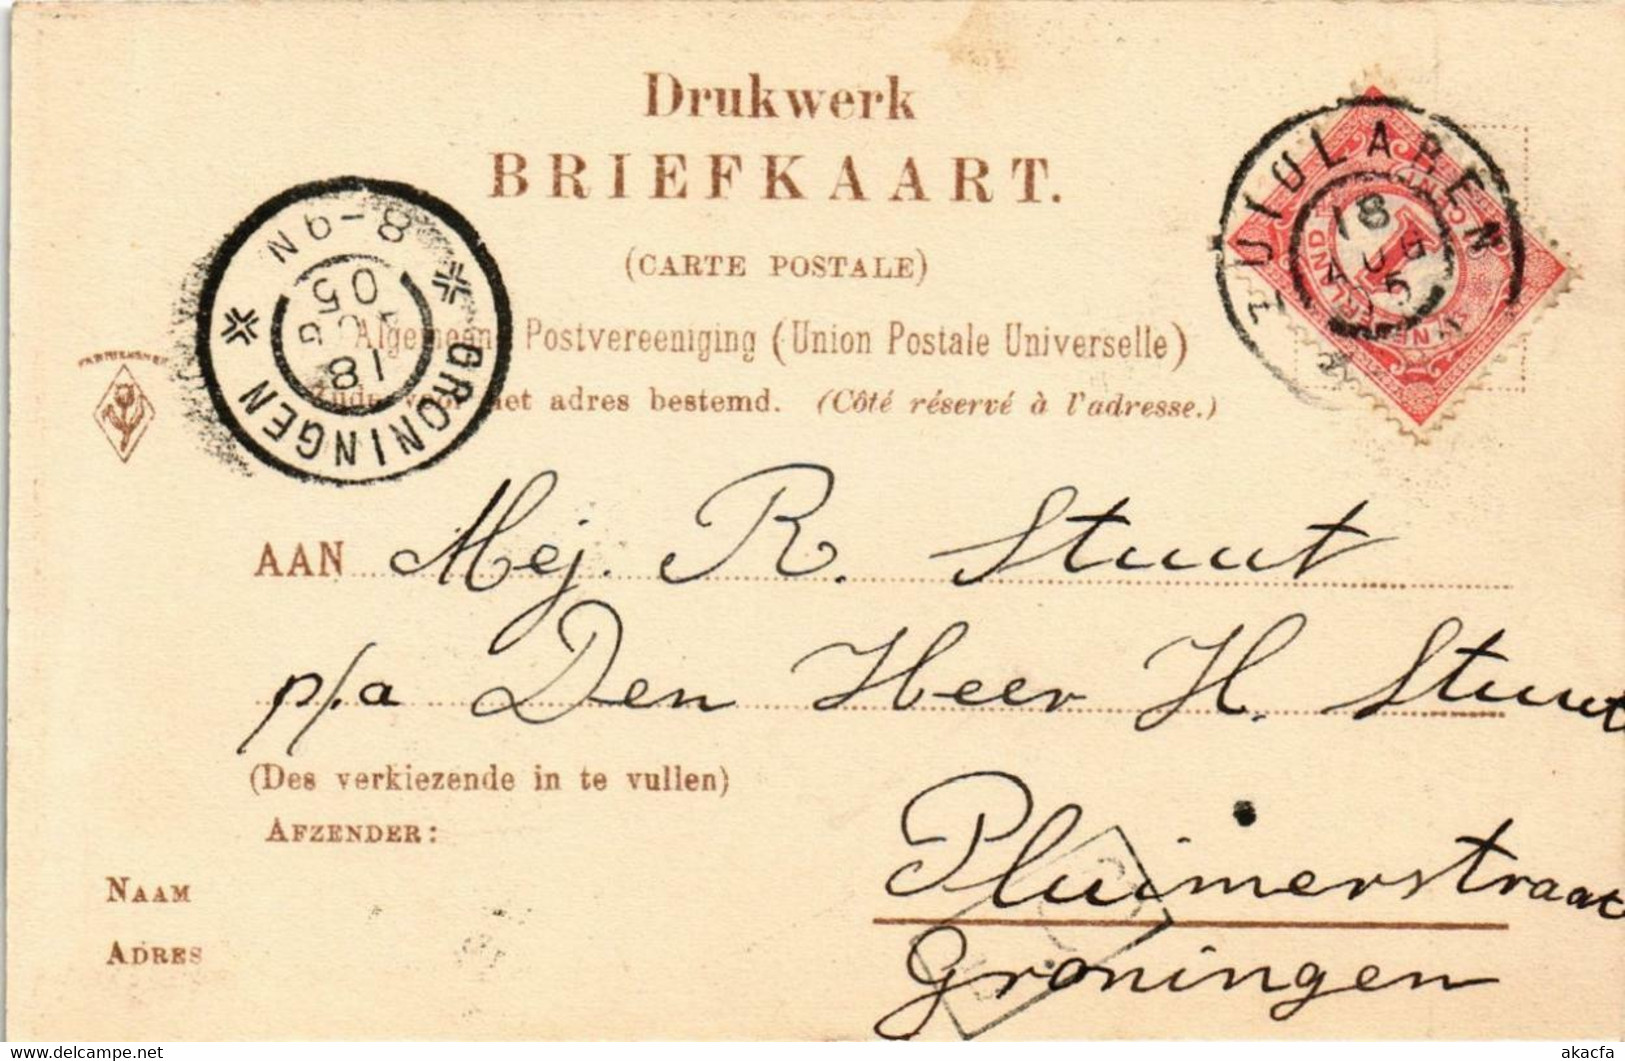 Drukwerk
BRIEFKAART.
(CARTE POSTALE)
Algemeene Postvereeniging (Union Postale Universelle)
Zijde voor het adres bestemd. (Côté réservé à l'adresse.)
ZUIDLAREN
18
AUG
05
8-9N
05
18
GRONINGEN
1
AAN Mej. R. Stuut
p/a Den Heer H. Stuut
(Des verkiezende in te vullen)
AFZENDER:
Pluimerstraat
NAAM
Groningen
ADRES
akacfa